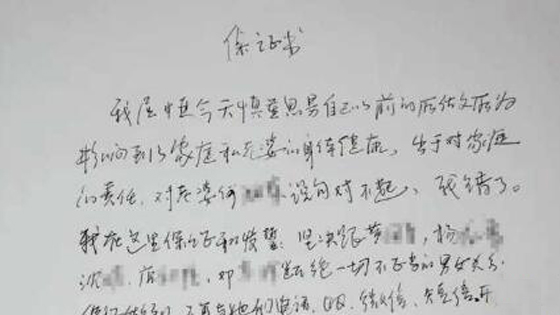 保证书
我屋中恒今天慎重思量自己以前的所作所为
影响到了家庭和老婆的身体健康，出于对家庭
的责任，对老婆何 说句对不起，我错了。
我在这里保证和发誓：坚决跟黄 ，杨
沈 ，唐 ，邓 断绝一切不正当的男女关系
保证做到不再与她们电话、QQ、微信、短信